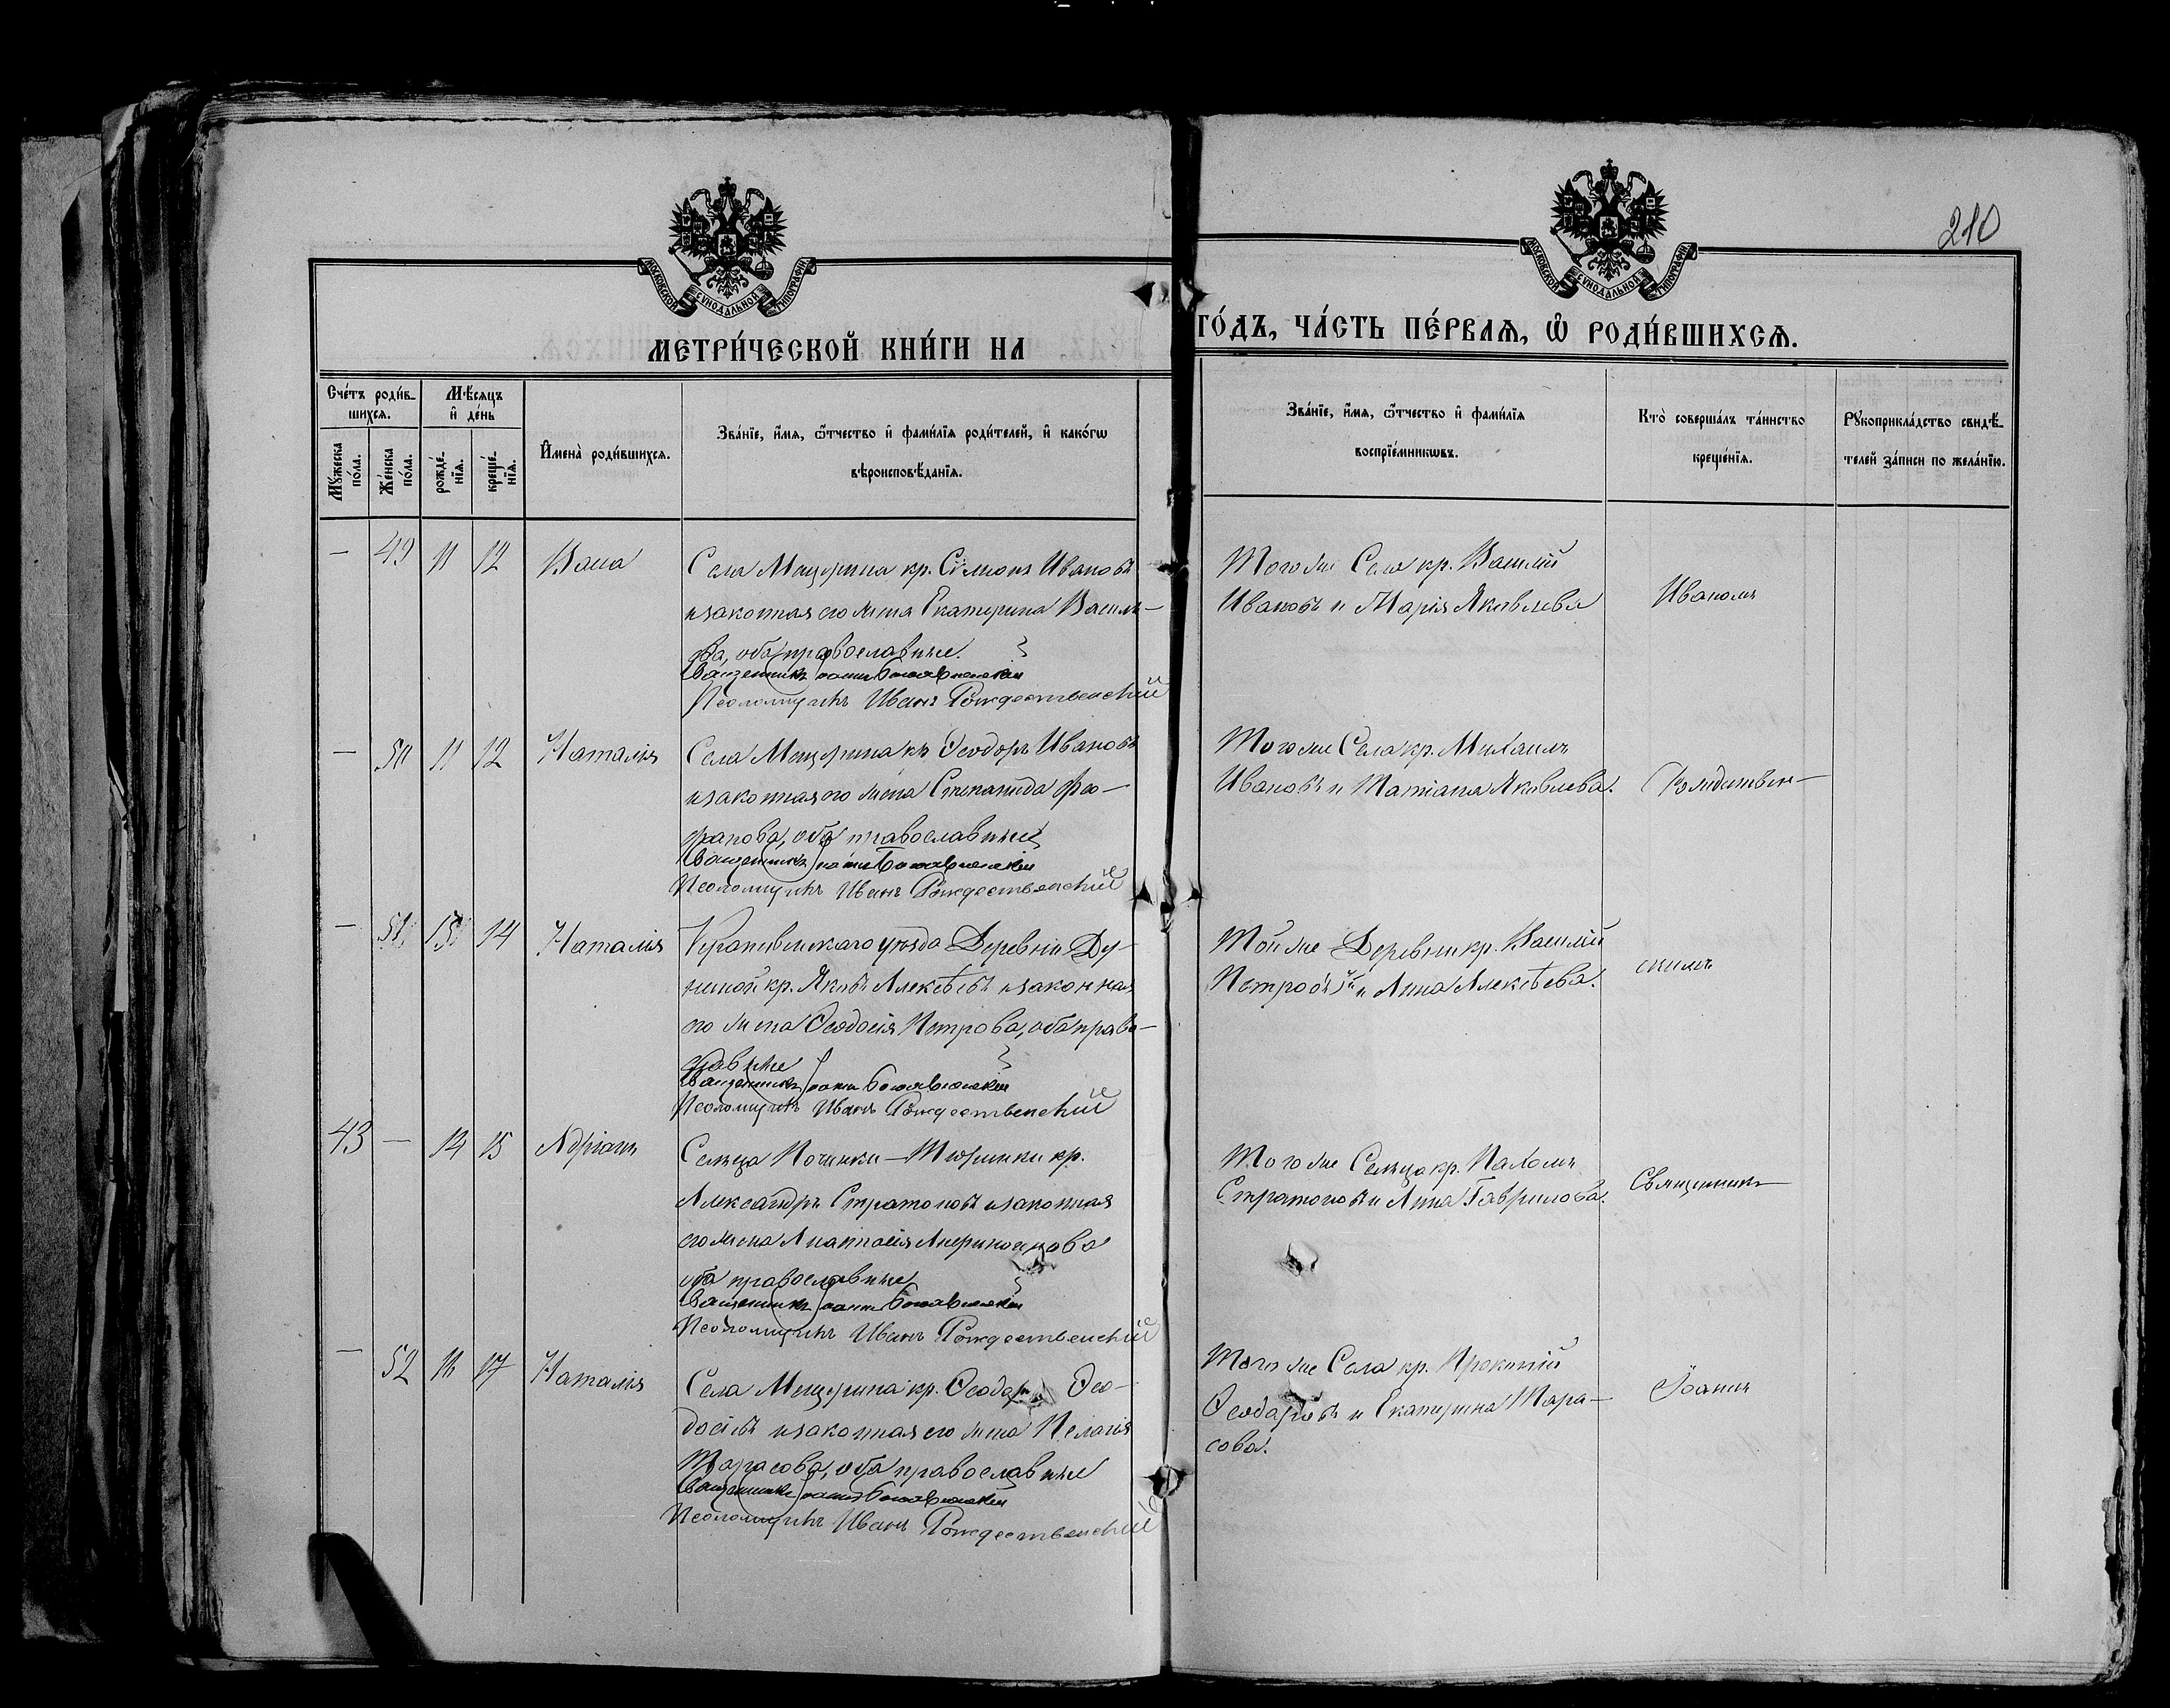 210
МОСКОВСКОЙ СУНОДАЛЬНОЙ ТИПОГРАФІИ
МОСКОВСКОЙ СУНОДАЛЬНОЙ ТИПОГРАФІИ
МЕТРИ́ЧЕСКОЙ КНИ́ГИ НА
ГО́ДЪ, ЧА́СТЬ ПЕ́РВАѦ, Ѡ҆ РОДИ́ВШИХСѦ.
Сче́тъ роди́в-
шихся.
Мѣ́сяцъ
и҆ де́нь
Мꙋ́жеска
по́ла.
Же́нска
по́ла.
рожде́-
нїя.
креще́-
нїя.
И҆мена̀ роди́вшихся.
Зва́нїе, и҆́мя, ѻ҆́тчество и҆ фами́лїя роди́телей, и҆ како́гѡ
вѣроисповѣ́данїя.
Зва́нїе, и҆́мя, ѻ҆́тчество и҆ фами́лїя
воспрїе́мникѡвъ.
Кто̀ соверша́лъ та́инство
креще́нїя.
Рꙋкоприкла́дство свидѣ́-
телей за́писи по жела́нїю.
— 49 11 12 Васса
Села Мещерина кр. Сѵмеонъ Ивановъ
и законная его жена Екатерина Василь-
ева, оба православные.
Священникъ Іоаннъ Богоявленскій
Псаломщикъ Иванъ Рождественскій
Того же Села кр. Василій
Ивановъ и Марія Яковлева
Иваномъ
— 50 11 12 Наталія
Села Мещерина кр Ѳеодоръ Ивановъ
и законная его жена Степанида Фео-
фанова, оба православные
Священникъ Іоаннъ Богоявленскій
Псаломщикъ Иванъ Рождественскій
Того же Села кр. Михаилъ
Ивановъ и Татіана Яковлева.
Рождествен-
— 51 13 14 Наталія
Крапивенскаго уѣзда Деревни Ду-
ниной кр. Яковъ Алексѣевъ и законная
его жена Ѳеодосія Петрова, оба право-
славные
Священникъ Іоаннъ Богоявленскій
Псаломщикъ Иванъ Рождественскій
Той же Деревни кр. Василій
Петровъ и Анна Алексѣева.
скимъ
43 — 14 15 Адріанъ
Сельца Починки-Тюринки кр.
Александръ Стратоновъ и законная
его жена Анастасія
оба православные
Священникъ Іоаннъ Богоявленскій
Псаломщикъ Иванъ Рождественскій
Того же Сельца кр. Пахомъ
Стратоновъ и Анна Гаврилова.
Священник-
— 52 16 17 Наталія
Села Мещерина кр. Ѳеодоръ Ѳео-
досіевъ и законная его жена Пелагія
Тарасова, оба православные
Священникъ Іоаннъ Богоявленскій
Псаломщикъ Иванъ Рождественскій
Того же Села кр. Прокопій
Ѳеодоровъ и Екатерина Тара-
сова.
Іоанн